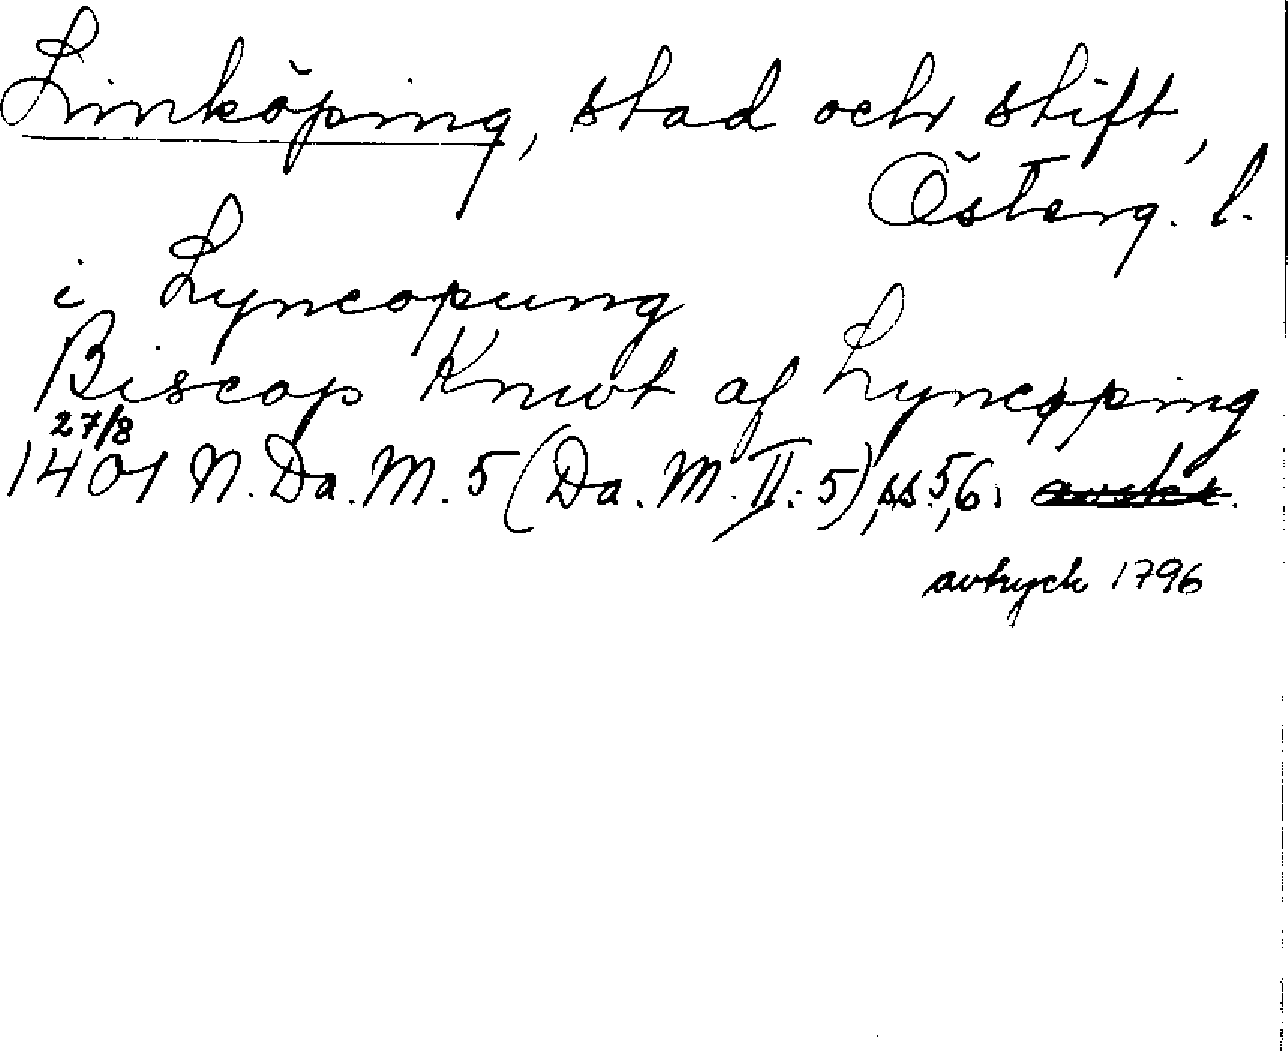 Linköping, stad och stift,
Österg. l.
i Lyncopung
Biscop Knwt af Lyncøping
27/8
1401 N. Da. M. 5 (Da. M. II. 5), ss. 5, 6. avskr.
avtryck 1796